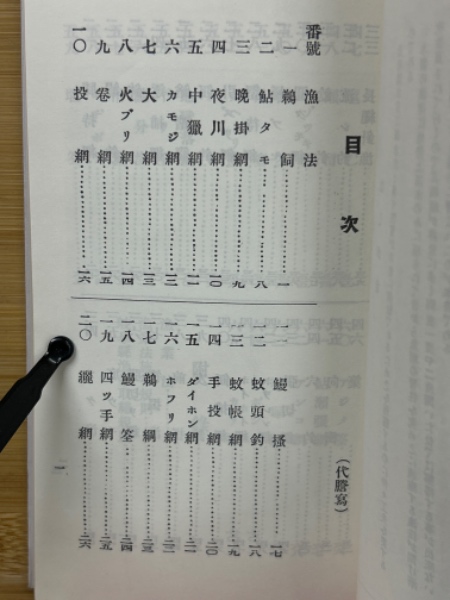 目次
(代謄寫)
番號 漁法
一 鵜飼……一
二 鮎タモ……八
三 晩掛網……九
四 夜川網……一〇
五 中獵網……一一
六 カモジ網……一二
七 大網……一三
八 火ブリ網……一四
九 卷網……一五
一〇 投網……一六
一一 鰻搔……一七
一二 蚊頭釣……一八
一三 蚊帳網……一九
一四 手投網……二〇
一五 ダイホン網……二一
一六 ホフリ網……二二
一七 鵜網……二三
一八 鰻筌……二四
一九 四ツ手網……二五
二〇 網……二六